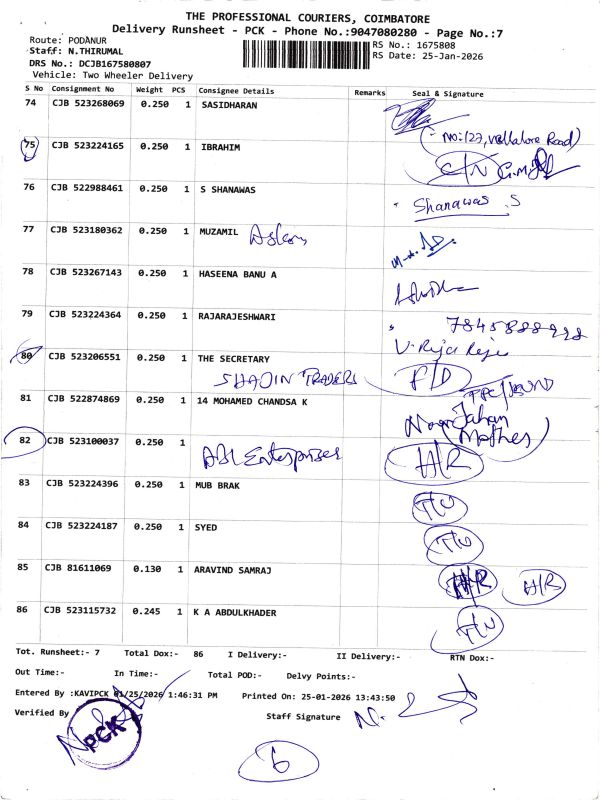 THE PROFESSIONAL COURIERS, COIMBATORE
Delivery Runsheet - PCK - Phone No.:9047080280 - Page No.:7
Route: PODANUR
RS No.: 1675808
Staff: N.THIRUMAL
RS Date: 25-Jan-2026
DRS No.: DCJB167580807
Vehicle: Two Wheeler Delivery
S No Consignment No Weight PCS Consignee Details Remarks Seal & Signature
74 CJB 523268069 0.250 1 SASIDHARAN
No: 127, Vellalore Road)
75 CJB 523224165 0.250 1 IBRAHIM C/N
76 CJB 522988461 0.250 1 S SHANAWAS Shanawas. S
77 CJB 523180362 0.250 1 MUZAMIL
78 CJB 523267143 0.250 1 HASEENA BANU A
79 CJB 523224364 0.250 1 RAJARAJESHWARI
V. Raja Raje
80 CJB 523206551 0.250 1 THE SECRETARY F/D
SHADIN TRADERS
81 CJB 522874869 0.250 1 14 MOHAMED CHANDSA K
Noor Jahan
(Mother)
82 CJB 523100037 0.250 1
ABI Enterprises H/R
83 CJB 523224396 0.250 1 MUB BRAK
84 CJB 523224187 0.250 1 SYED
85 CJB 81611069 0.130 1 ARAVIND SAMRAJ H/R A/R
86 CJB 523115732 0.245 1 K A ABDULKHADER
Tot. Runsheet:- 7 Total Dox:- 86 I Delivery:- II Delivery:- RTN Dox:-
Out Time:- In Time:- Total POD:- Delvy Points:-
Entered By :KAVIPCK 01/25/2026 1:46:31 PM Printed On: 25-01-2026 13:43:50
Verified By
Staff Signature
PCK
6